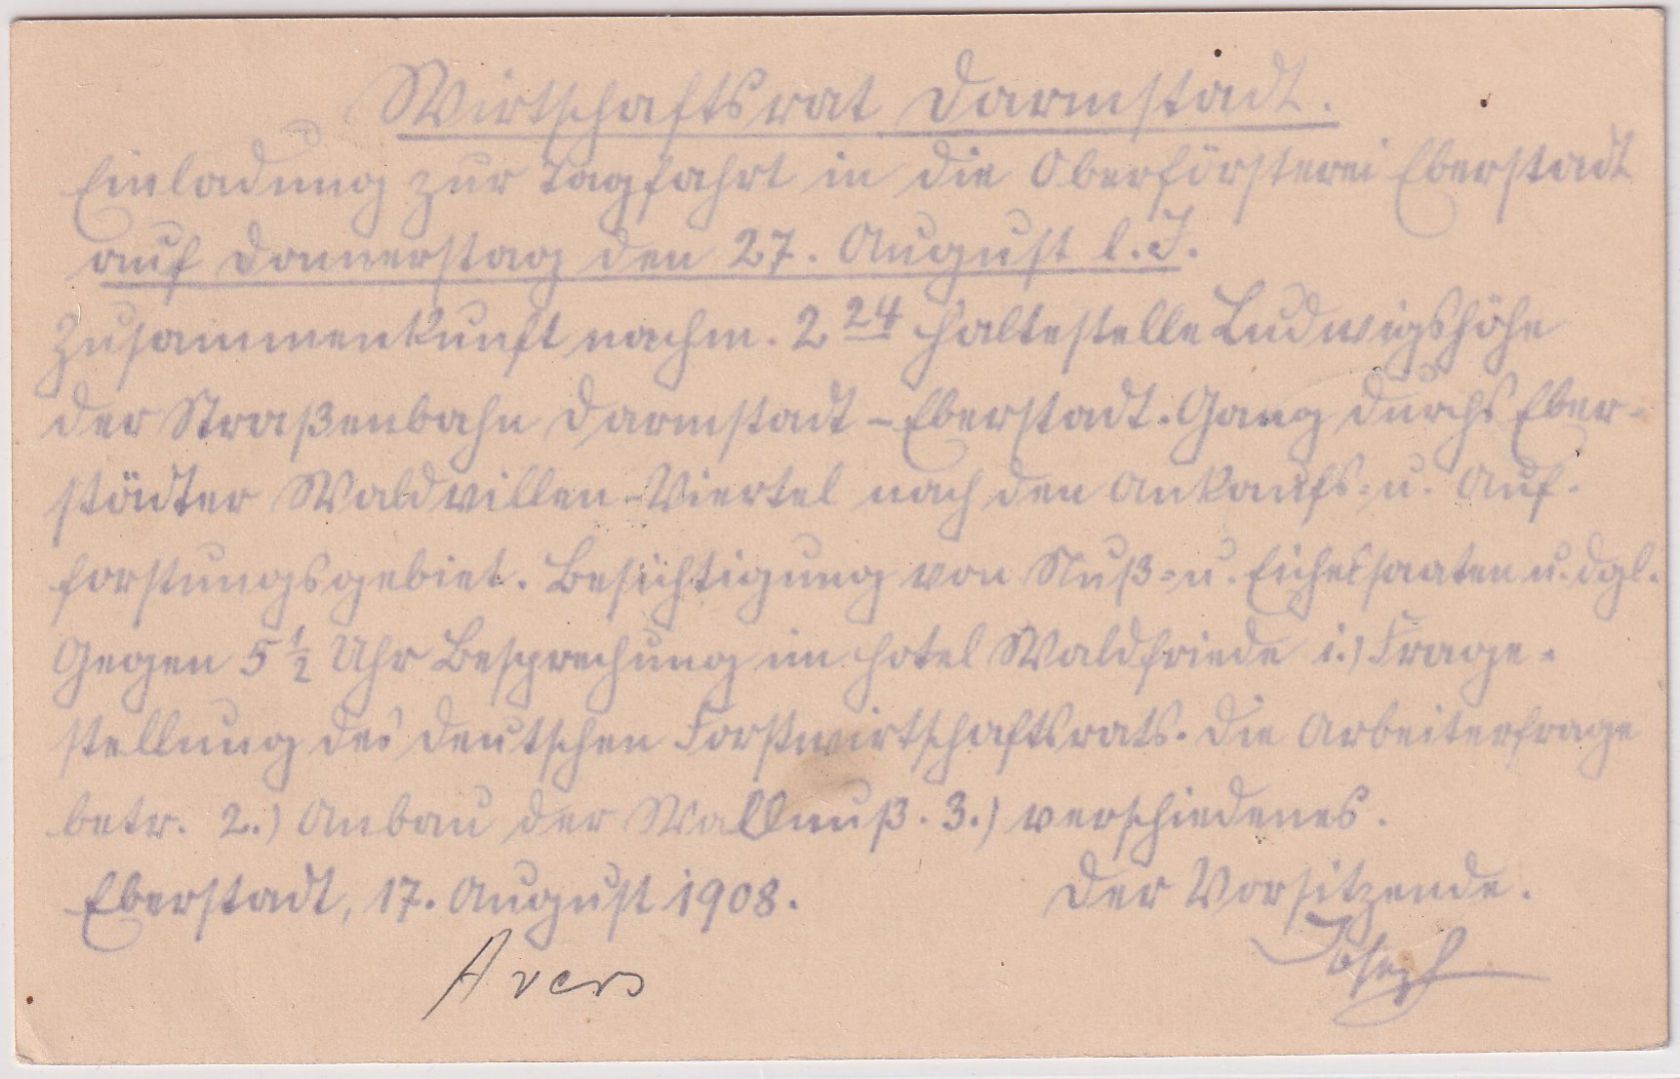 Wirtschaftsrat Darmstadt.
Einladung zur Tagfahrt in die Oberförsterei Eberstadt
auf Donnerstag den 27. August l. J.
Zusammenkunft nachm. 2 24 Haltestelle Ludwigshöhe
der Straßenbahn Darmstadt - Eberstadt. Gang durchs Eber-
städter Waldvillen-Viertel nach den Ankaufs- u. Auf-
forstungsgebiet. Besichtigung von Nuß- u. Eichelsaaten u. dgl.
Gegen 5 1/2 Uhr Besprechung im Hotel Waldfriede 1.) Frage-
stellung des deutschen Forstwirtschaftsrats. Die Arbeiterfrage
betr. 2.) Anbau der Wallnuß. 3.) verschiedenes.
Eberstadt, 17. August 1908. Der Vorsitzende.
Joseph